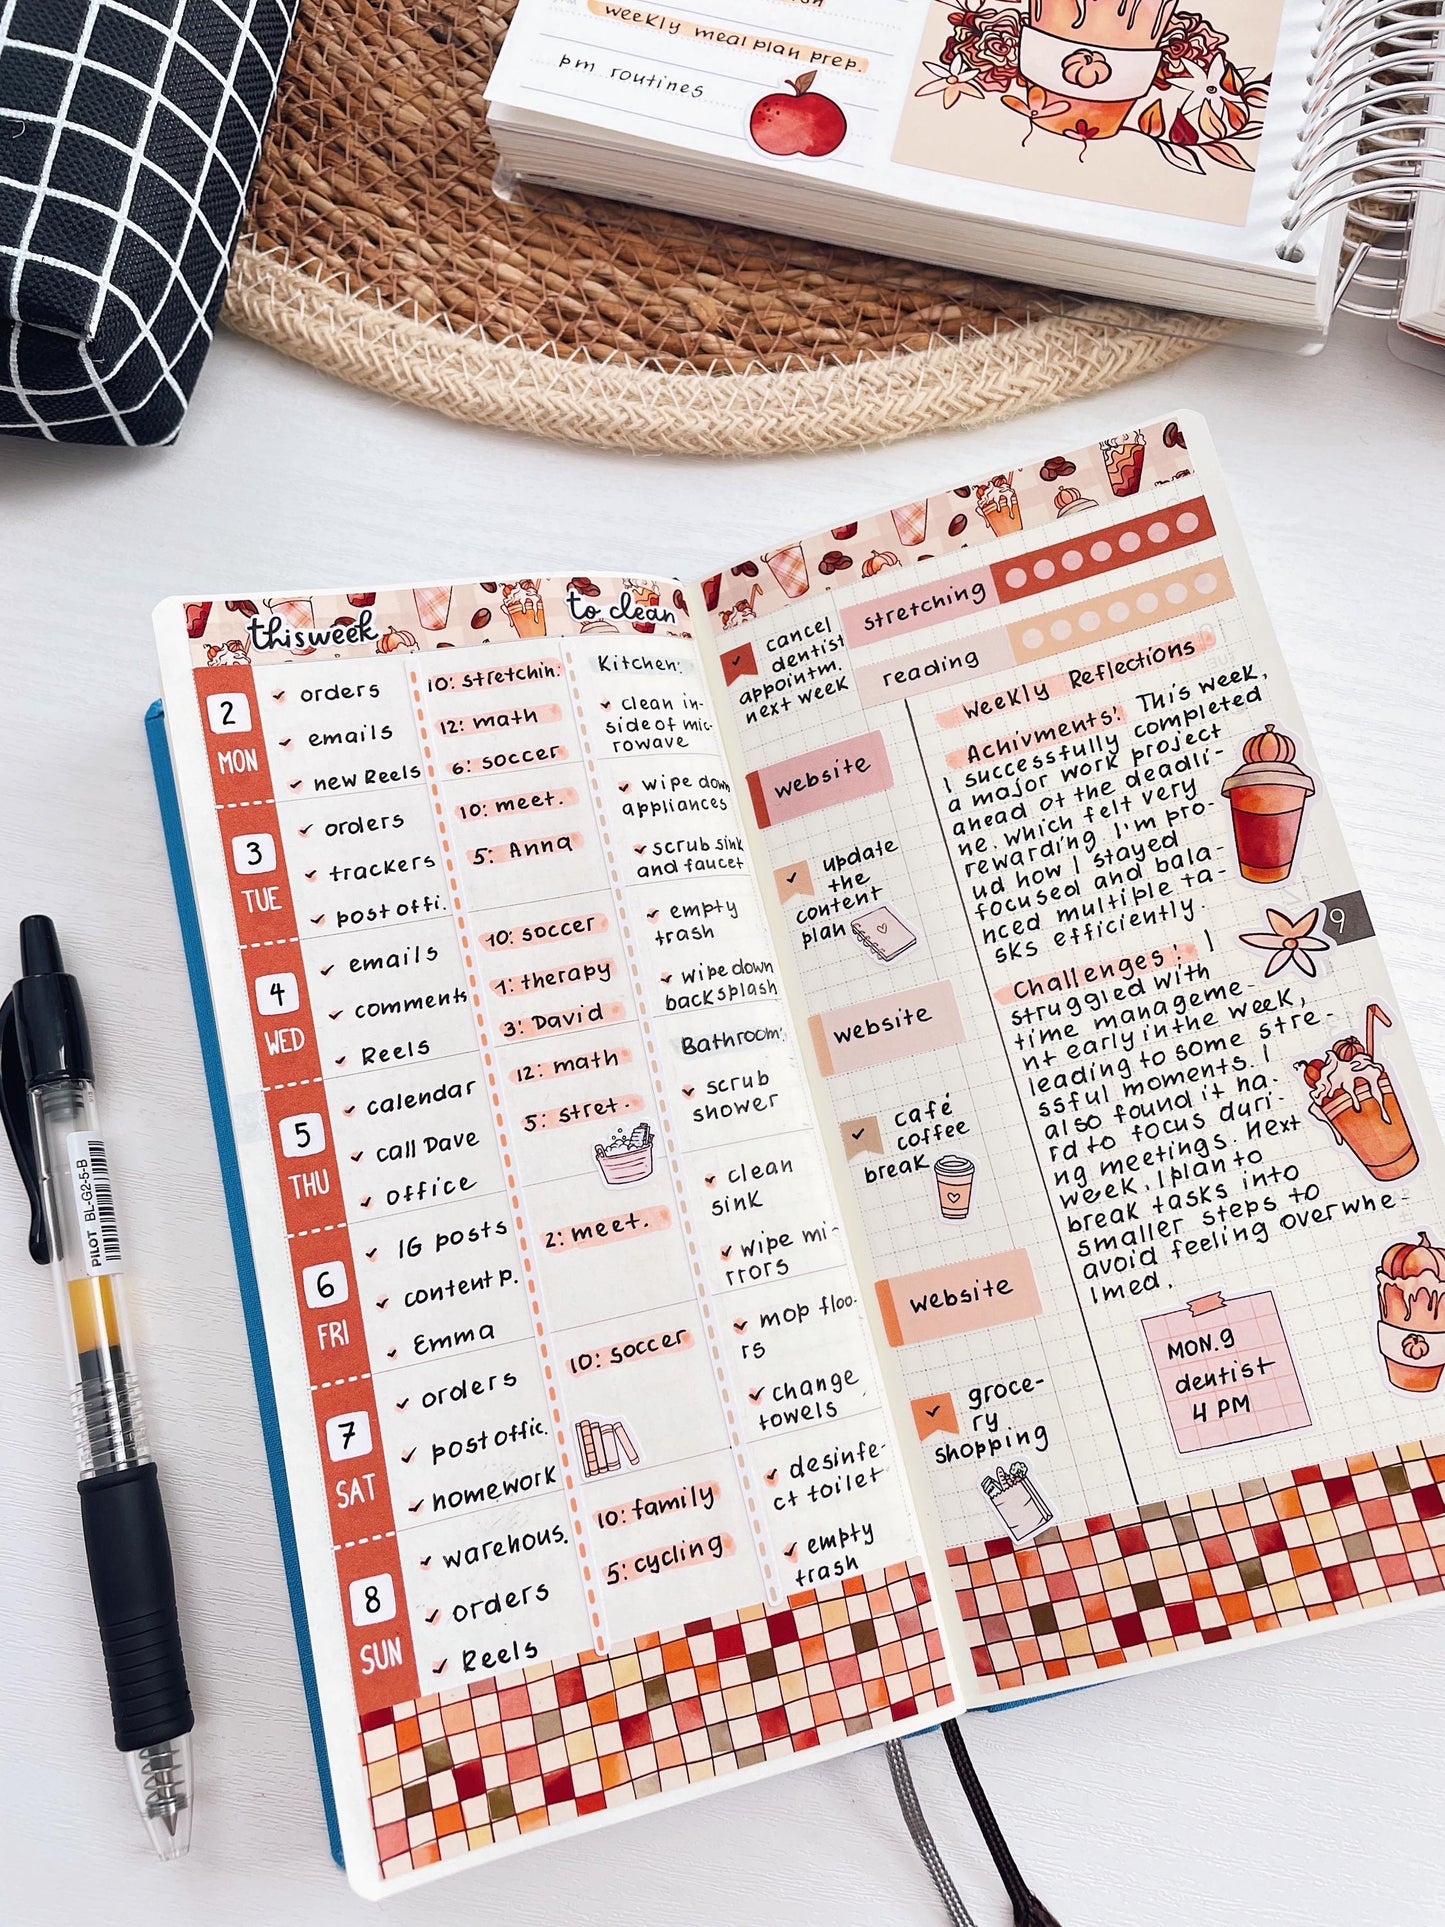 weekly meal plan prep.
pm routines
this week
to clean
2
MON
✓ orders
✓ emails
✓ new Reels
3
TUE
✓ orders
✓ trackers
✓ post offi.
4
WED
✓ emails
✓ comments
✓ Reels
5
THU
✓ calendar
✓ call Dave
✓ office
6
FRI
✓ IG posts
✓ content p.
✓ Emma
7
SAT
✓ orders
✓ post offic.
✓ homework
8
SUN
✓ warehous.
✓ orders
✓ Reels
10: stretchin.
12: math
6: soccer
10: meet.
5: Anna
10: soccer
1: therapy
3: David
12: math
5: stret.
2: meet.
10: soccer
10: family
5: cycling
Kitchen:
✓ clean in-
side of mic-
rowave
✓ wipe down
appliances
✓ scrub sink
and faucet
✓ empty
trash
✓ wipe down
backsplash
Bathroom:
✓ scrub
shower
✓ clean
sink
✓ wipe mi-
rrors
✓ mop floo-
rs
✓ change
towels
✓ desinfe-
ct toilet
✓ empty
trash
✓ cancel
dentist
appointm.
next week
website
✓ update
the
content
plan
website
✓ café
coffee
break
website
✓ groce-
ry
shopping
stretching
reading
Weekly Reflections
Achivments: This week,
I successfully completed
a major work project
ahead of the deadli-
ne, which felt very
rewarding. I'm pro-
ud how I stayed
focused and bala-
nced multiple ta-
sks efficiently.
Challenges: I
struggled with
time manageme-
nt early in the week,
leading to some stre-
ssful moments. I
also found it ha-
rd to focus duri-
ng meetings. Next
week, I plan to
break tasks into
smaller steps to
avoid feeling overwhe-
lmed.
9
MON. 9
dentist
4 PM
PILOT BL-G2-5-B